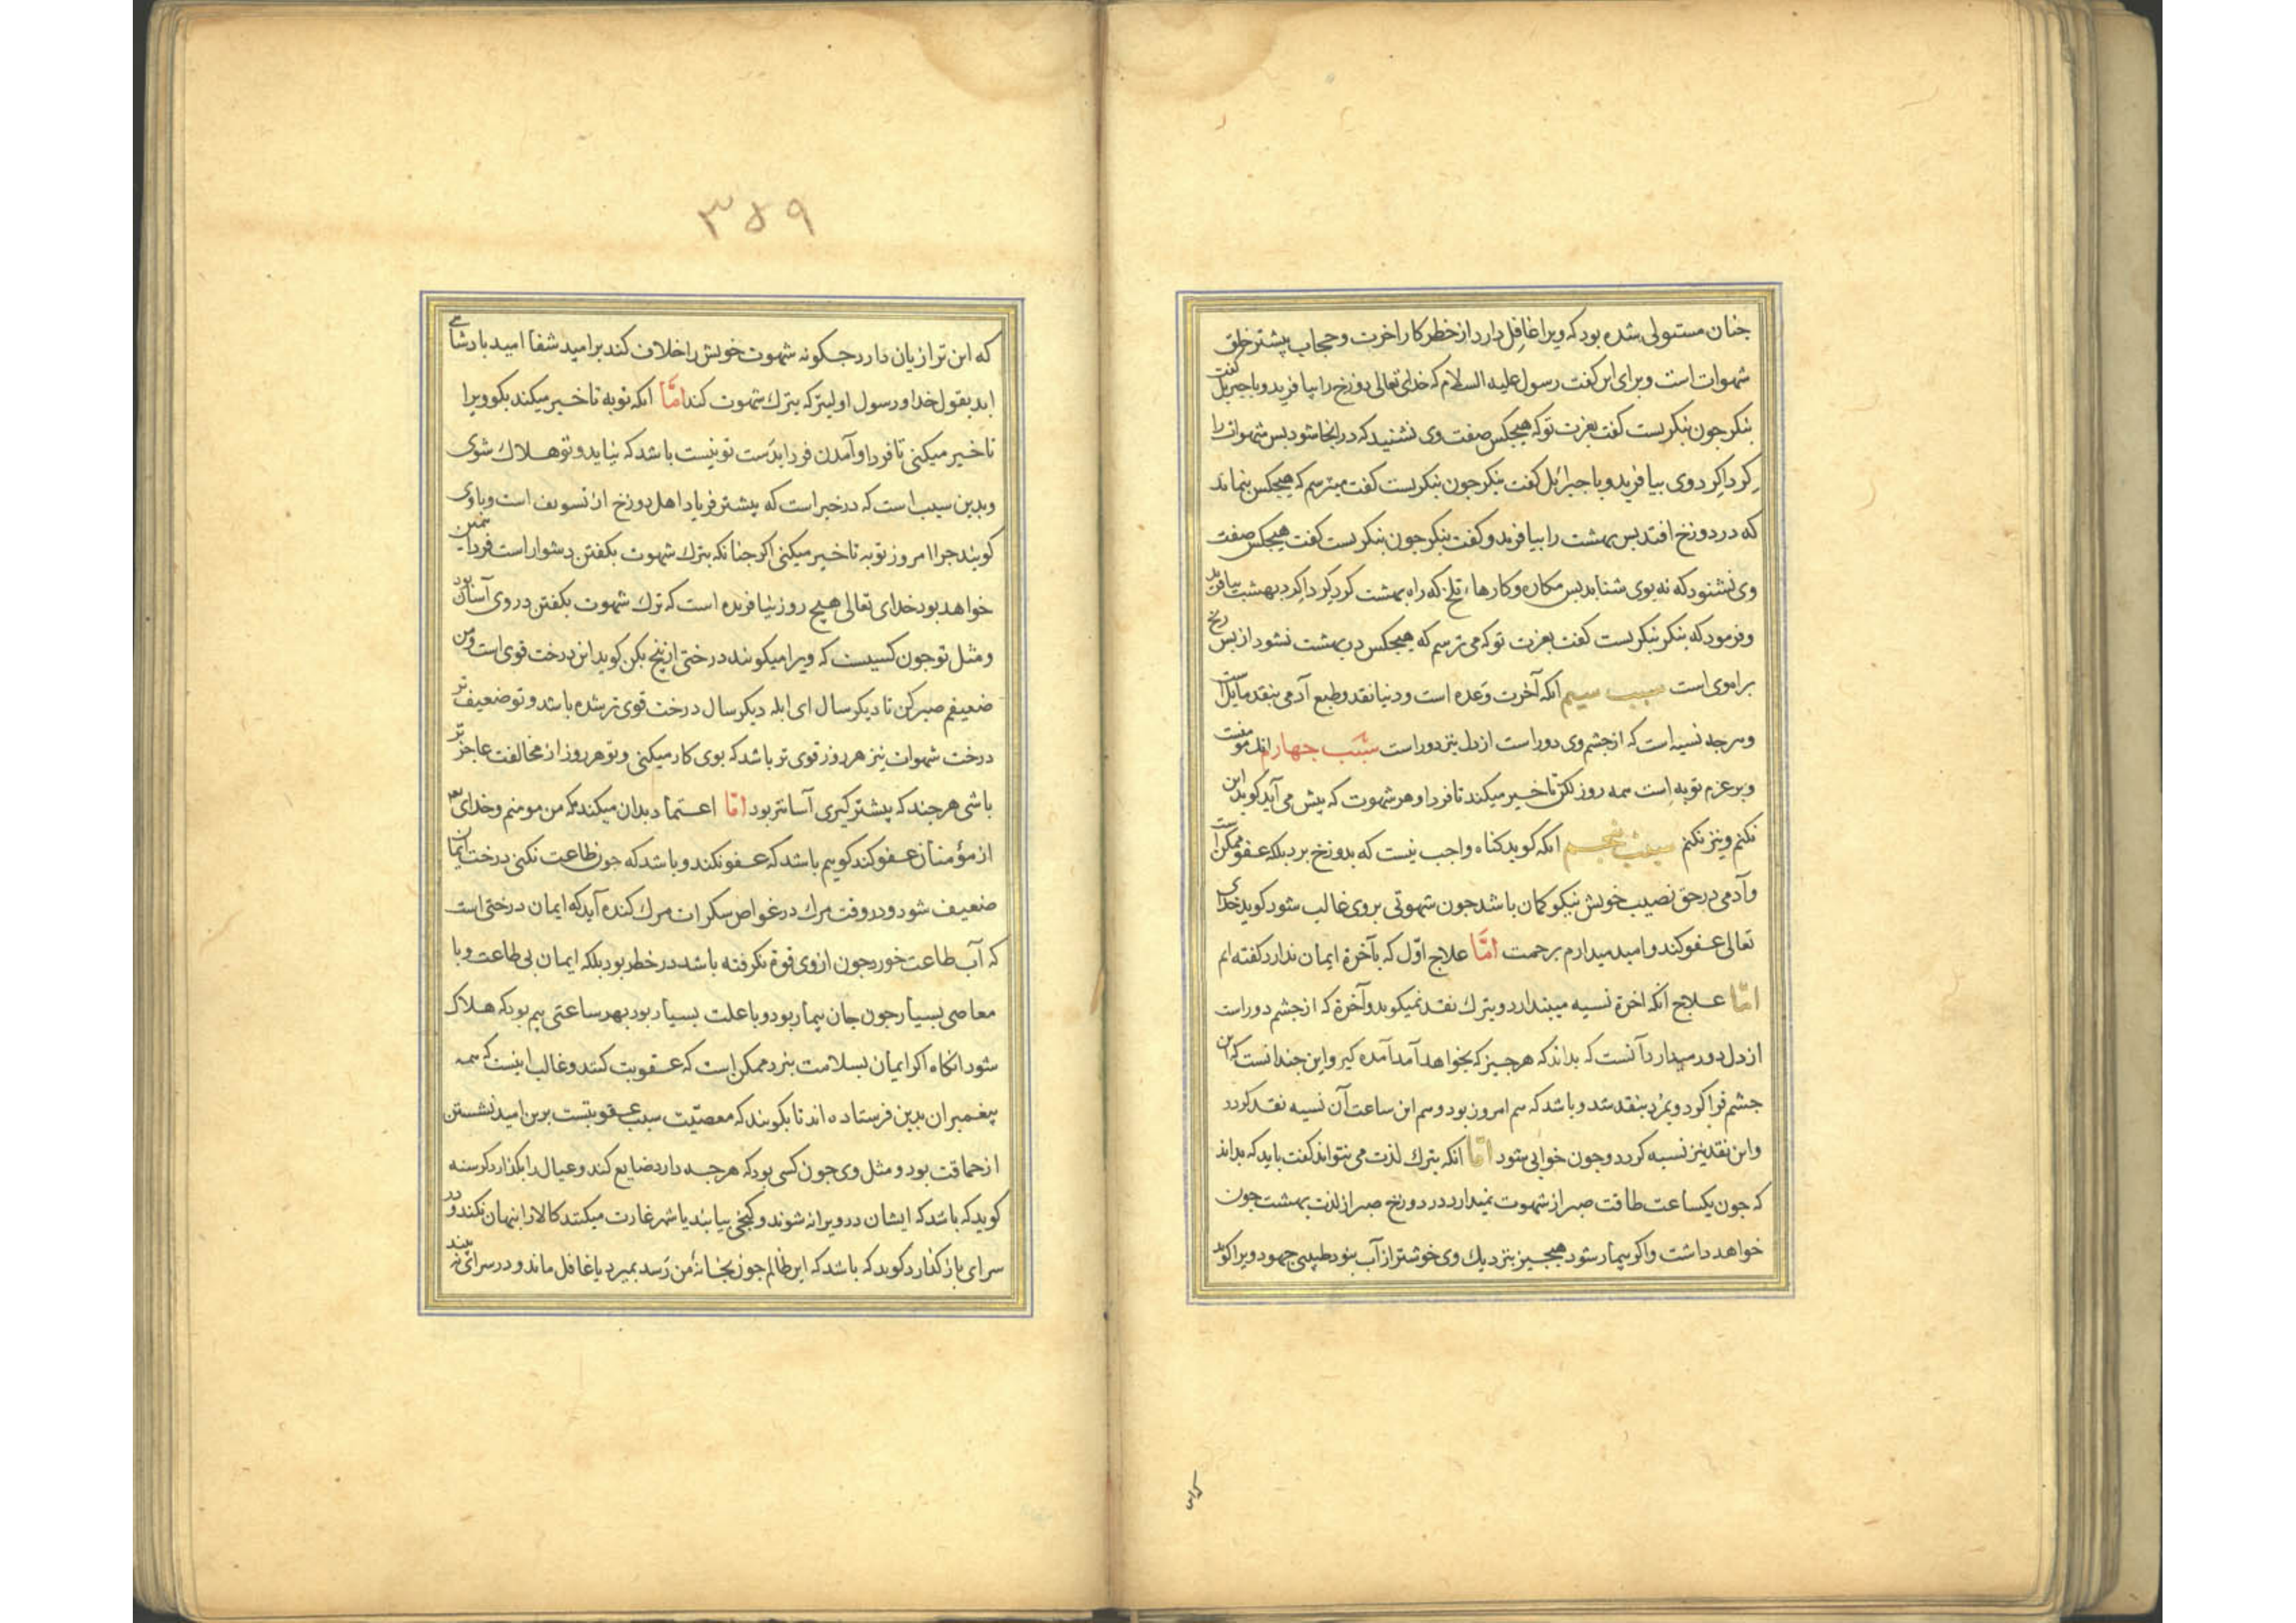 جنان مستولی شده بود که ویرا غافل دارد از خطر کار اخرت و حجاب پیشتر خلق
شهوات است و برای این کفت رسول علیه السلام که خدای تعالی دوزخ را بیافرید و با جبریل کفت
بنکر جون بنکریست کفت بعزت تو که هیجکس صفت وی نشنید که در انجا شود بس شهوات را
کرداکرد وی بیافرید و با جبرائیل کفت بنکر جون بنکریست کفت میترسم که هیجکس بنماند
که در دوزخ افتد بس بهشت را بیافرید و کفت بنکر جون بنکریست کفت هیجکس صفت
وی نشنود که نه بوی شتابد بس مکاره و کارها تلخ که راه بهشت کرداکرد بهشت بیافرید
و فرمود که بنکر بنکریست کفت بعزت تو که می ترسم که هیجکس در بهشت نشود از بس رنج
براه وی است سبب سیم انکه آخرت وعده است و دنیا نقد و طبع آدمی بنقد مایل است
و هرجه نسیه است که از جشم وی دور است از دل نیز دور است سبب جهارم انکه مومنست
و بر عزم توبه است همه روز لکن تاخیر میکند تا فردا و هر شهوت که بیش می آید کوید این
نکنم و نیز نکنم سبب بنجم انکه کوید کناه واجب نیست که بدوزخ برد بلکه عفو ممکن است
و آدمی در حق نصیب خویش نیکو کمان باشد جون شهوتی بر وی غالب شود کوید خدای
تعالی عفو کند و امید میدارم برحمت امّا علاج اوّل که بآخرة ایمان ندارد کفته ایم
امّا علاج آنکه اخرة نسیه میبندارد و بترک نقد نمیکوید و آخرة که از جشم دور است
از دل دور میدارد آنست که بداند که هرجیز که بخواهد آمد آمده کیر و این جندانست که این
جشم فرا کرد و بمرد بنقد شد و باشد که هم امروز بود و هم این ساعت آن نسیه نقد کردد
و این نقد نیز نسیه کردد و جون خوابی شود امّا آنکه بترک لذت می نتواند کفت باید که بداند
که جون یکساعت طاقت صبر از شهوت نمیدارد در دوزخ صبر از لذت بهشت جون
خواهد داشت و اکر بیمار شود هیجیز بنزدیک وی خوشتر از آب نبود طبیبی جهود ویرا کوید
که این
۳۵۹
که این ترا زیان دارد جکونه شهوت خویش را خلاف کند بر امید شفا امید بادشاهی
ابد بقول خدا و رسول اولیتر که بترک شهوت کند امّا انکه توبه تاخیر میکند بکو ویرا
تاخیر میکنی تا فردا و آمدن فردا بدست تو نیست باشد که نیاید و تو هلاک شوی
و بدین سبب است که در خبر است که بیشتر فریاد اهل دوزخ از تسویف است و با وی
کویند جرا امروز توبه تاخیر میکنی اکر جنانکه بترک شهوت بکفتن دشوار است فردا همین
خواهد بود خدای تعالی هیچ روز نیافریده است که ترک شهوت بکفتن در وی آسان بود
و مثل تو جون کسیست که ویرا میکویند درختی از بیخ بکن کوید این درخت قوی است و من
ضعیفم صبر کن تا دیکر سال ای ابله دیکر سال درخت قوی تر شده باشد و تو ضعیف تر
درخت شهوات نیز هر روز قوی تر باشد که بوی کار میکنی و تو هر روز از مخالفت عاجز تر
باشی هرجند که بیشتر کیری آسانتر بود امّا اعتماد بدان میکند که من مومنم و خدای
از مؤمنان عفو کند کویم باشد که عفو نکند و باشد که جون طاعت نکنی درخت ایمان
ضعیف شود و در وقت مرک در غواص سکرات مرک کنده آید که ایمان درختی است
که آب طاعت خورد جون از وی قوة نکرفته باشد در خطر بود بلکه ایمان بی طاعت و با
معاصی بسیار جون جان بیمار بود و با علت بسیار بود بهر ساعتی بیم بود که هلاک
شود انکاه اکر ایمان بسلامت ببرد ممکن است که عقوبت کنند و غالب اینست که همه
بیغمبران بدین فرستاده اند تا بکویند که معصیّت سبب عقوبتست برین امید نشستن
از حماقت بود و مثل وی جون کسی بود که هرجه دارد ضایع کند و عیال را بکذارد کرسنه
کوید که باشد که ایشان در ویرانه شوند و کنجی بیابند یا شهر غارت میکنند کالا را بنهان نکند و در
سرای باز کذارد کوید که باشد که این ظالم جون بخانهٔ من رسد بمیرد یا غافل ماند و در سرای نه بیند